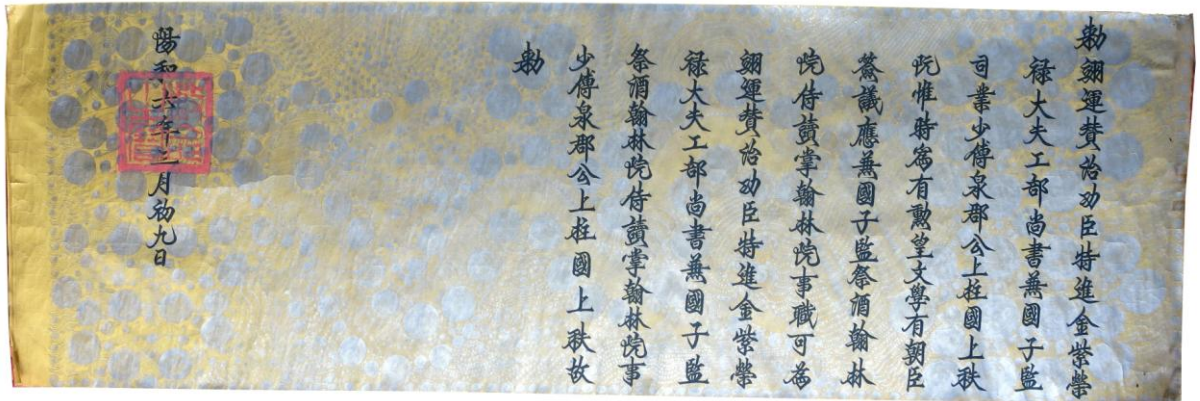 勅翊運賛治功臣特進金紫榮
禄大夫工部尚書兼國子監
司業少傅泉郡公上柱國上秩
阮惟時爲有勲望文學有朝臣
僉議應兼國子監祭酒翰林
院侍讀掌翰林院事職可爲
翊運賛治功臣特進金紫榮
禄大夫工部尚書兼國子監
祭酒翰林院侍讀掌翰林院事
少傅泉郡公上柱國上秩故
勅
陽和六年二月初九日